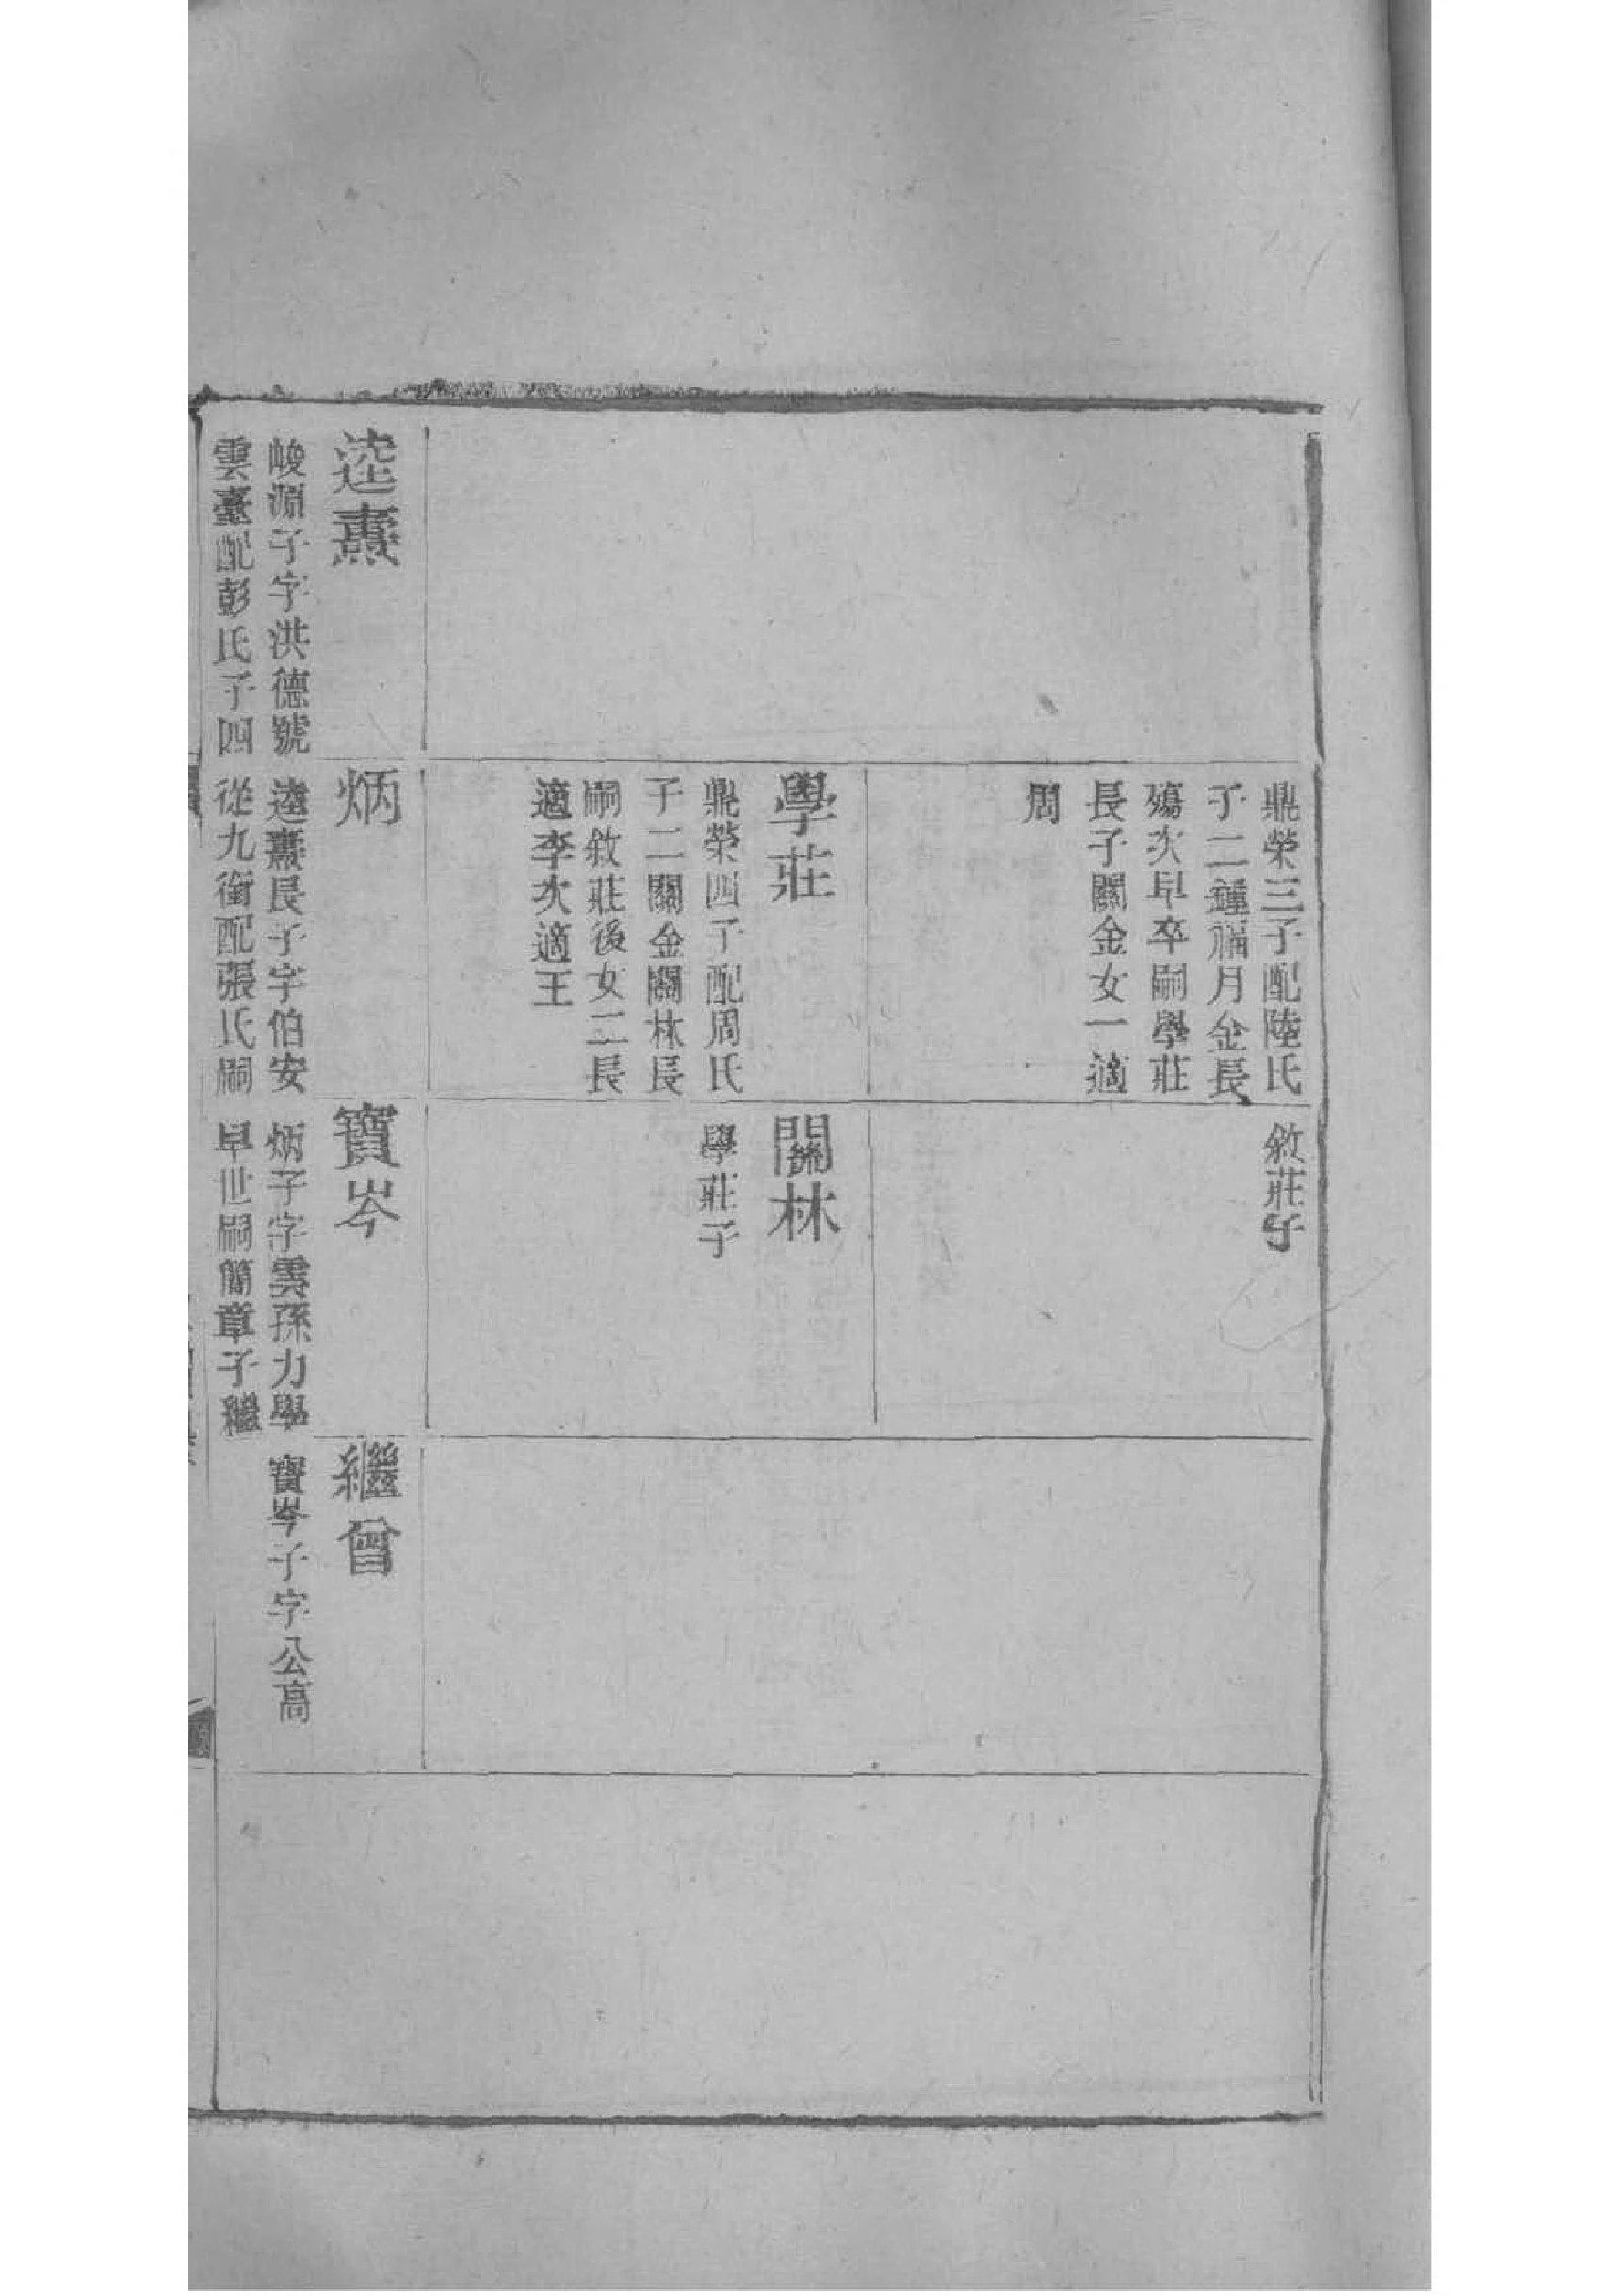 鼎榮三子配陸氏
子二鐘滿月金長
殤次早卒嗣學莊
長子關金女一適
周
敘莊子
學莊
鼎榮四子配周氏
子二關金關林長
嗣敘莊後女二長
適李次適王
關林
學莊子
逵燾
峻淵子字洪德號
雲臺配彭氏子四
炳
逵燾長子字伯安
從九銜配張氏嗣
寶岑
炳子字雲孫力學
早世嗣簡章子繼
繼曾
寶岑子字公高